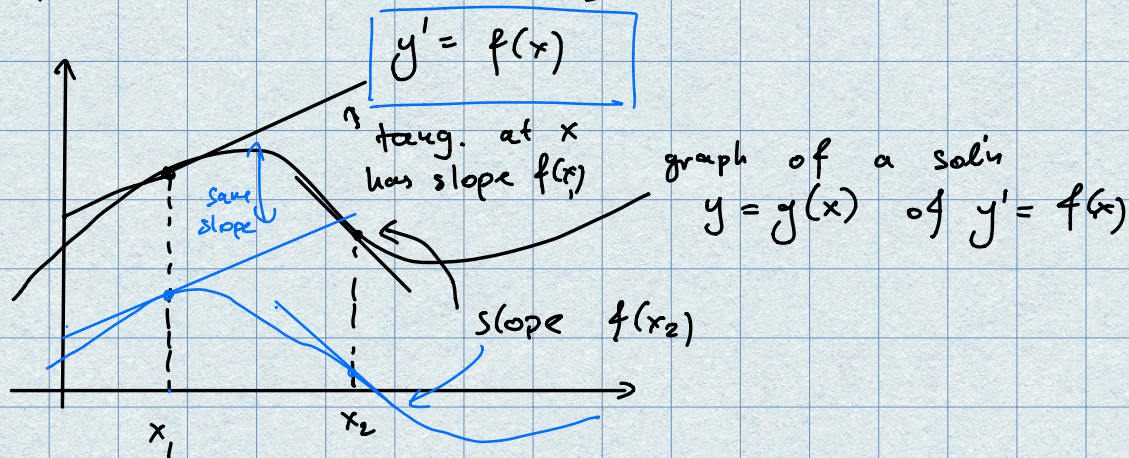 y' = f(x)
tang. at x
has slope f(x)
graph of a sol'n
y = g(x) of y' = f(x)
same
slope
slope f(x₂)
x₁
x₂